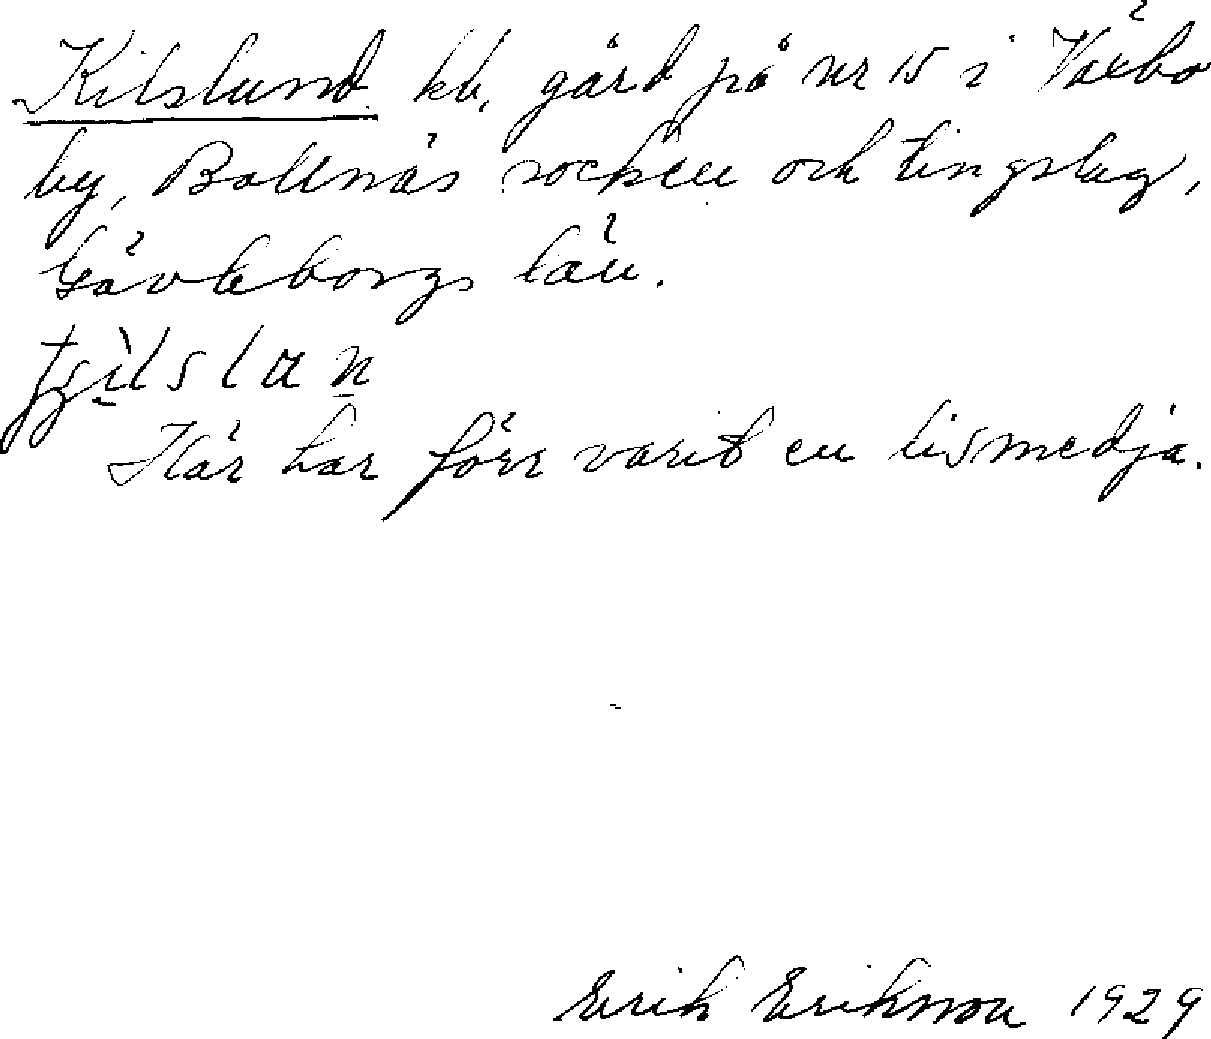 Kilslund kb, gård på nr 15 i Växbo
by, Bollnäs socken och tingslag,
Gävleborgs län.
Här har förr varit en liesmedja.
Erik Erikson 1929